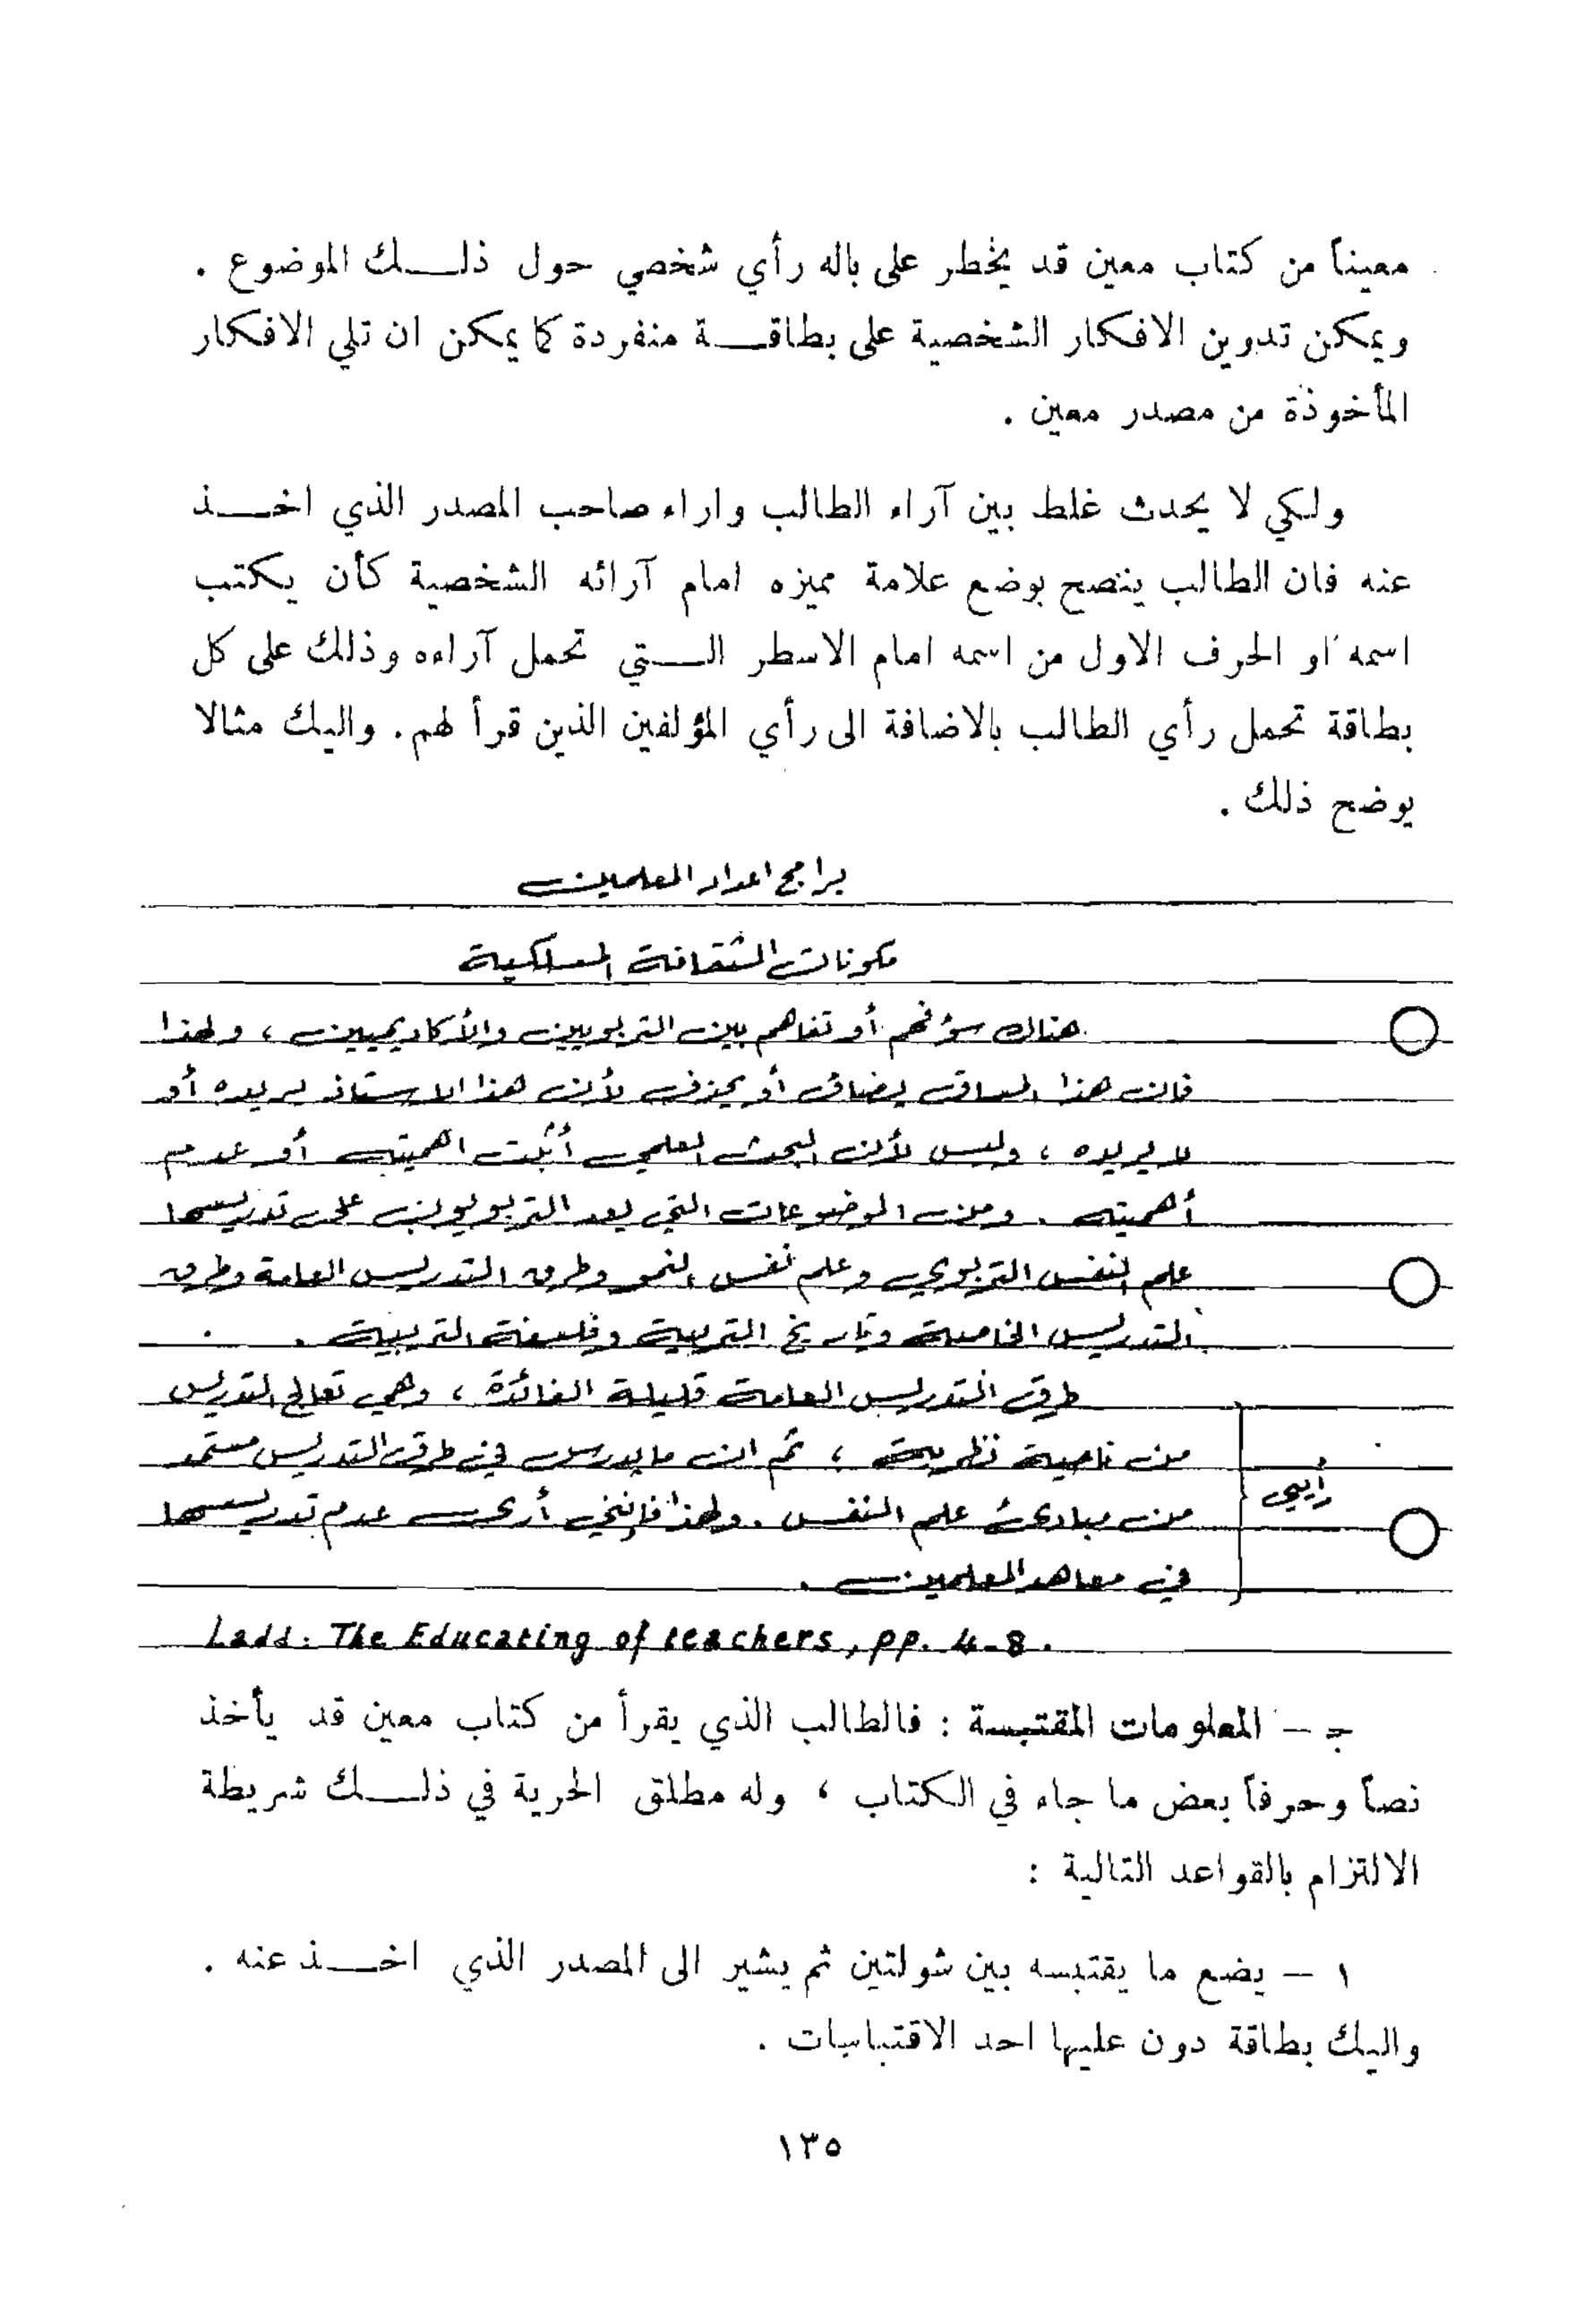 معيناً من كتاب معين قد يخطر على باله رأي شخصي حول ذلــك الموضوع .
ويمكن تدوين الافكار الشخصية على بطاقــة منفردة كما يمكن ان تلي الافكار
المأخوذة من مصدر معين .
ولكي لا يحدث غلط بين آراء الطالب واراء صاحب المصدر الذي اخــذ
عنه فان الطالب ينصح بوضع علامة مميزه امام آرائه الشخصية كأن يكتب
اسمه او الحرف الاول من اسمه امام الاسطر الــتي تحمل آراءه وذلك على كل
بطاقة تحمل رأي الطالب بالاضافة الى رأي المؤلفين الذين قرأ لهم. واليك مثالا
يوضح ذلك .
برامج اعداد المعلمين
مكونات الثقافة المسلكية
هناك سؤ فهم أو تفاهم بين التربويين والأكاديميين ، ولهذا
فان هذا المساق يضاف أو يحذف لأن هذا الاستاذ يريده أو
لا يريده ، وليس لأن البحث العلمي أثبت اهميته أو عدم
أهميته . ومن الموضوعات التي يعد التربويون على تدريسها
علم النفس التربوي وعلم نفس النمو وطرق التدريس العامة وطرق
التدريس الخاصة وتاريخ التربية وفلسفة التربية .
طرق التدريس العامة قليلة الفائدة ، وهي تعالج التدريس
من ناحية نظرية ، ثم ان ما يدرس في طرق التدريس مستمد
رأيي
من مبادئ علم النفس . ولهذا فإنني أرى عدم تدريسها
في معاهد المعلمين .
Ladd. The Educating of teachers, pp. 4-8.
جـ – المعلومات المقتبسة : فالطالب الذي يقرأ من كتاب معين قد يأخذ
نصاً وحرفاً بعض ما جاء في الكتاب ، وله مطلق الحرية في ذلــك شريطة
الالتزام بالقواعد التالية :
١ – يضع ما يقتبسه بين شولتين ثم يشير الى المصدر الذي اخــذ عنه .
واليك بطاقة دون عليها احد الاقتباسات .
١٣٥